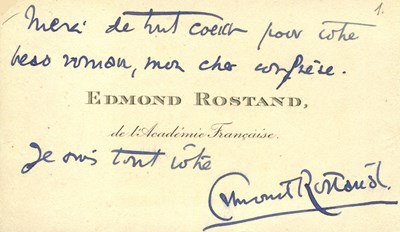 1.
Merci de tout coeur pour votre
beau roman, mon cher confrère.
EDMOND ROSTAND,
de l'Académie Française.
Je suis tout vôtre
Edmond Rostand.